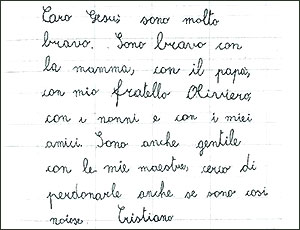 Caro Gesù sono molto
bravo. Sono bravo con
la mamma, con il papà,
con mio fratello Oliviero,
con i nonni e con i miei
amici. Sono anche gentile
con le mie maestre, cerco di
perdonarle anche se sono così
noiose. Cristiano